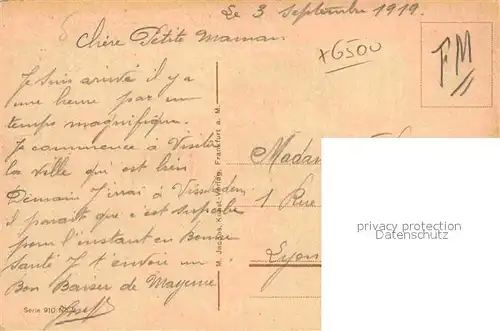 Le 3 Septembre 1919.
Chère Petite Maman
+G500
FM
Je suis arrivé il y a
une heure par un
temps magnifique.
Je commence a Visiter
la ville qui est bien
Demain J'irai à
il parait que c'est superbe
pour l'instant en Bonne
santé J t'envoie un
Bon Baiser de Mayence
Madam
1 Rue
Lyon
M. Jacobs, Kunst-Verlag, Frankfurt a. M.
Serie 910
privacy protection
Datenschutz